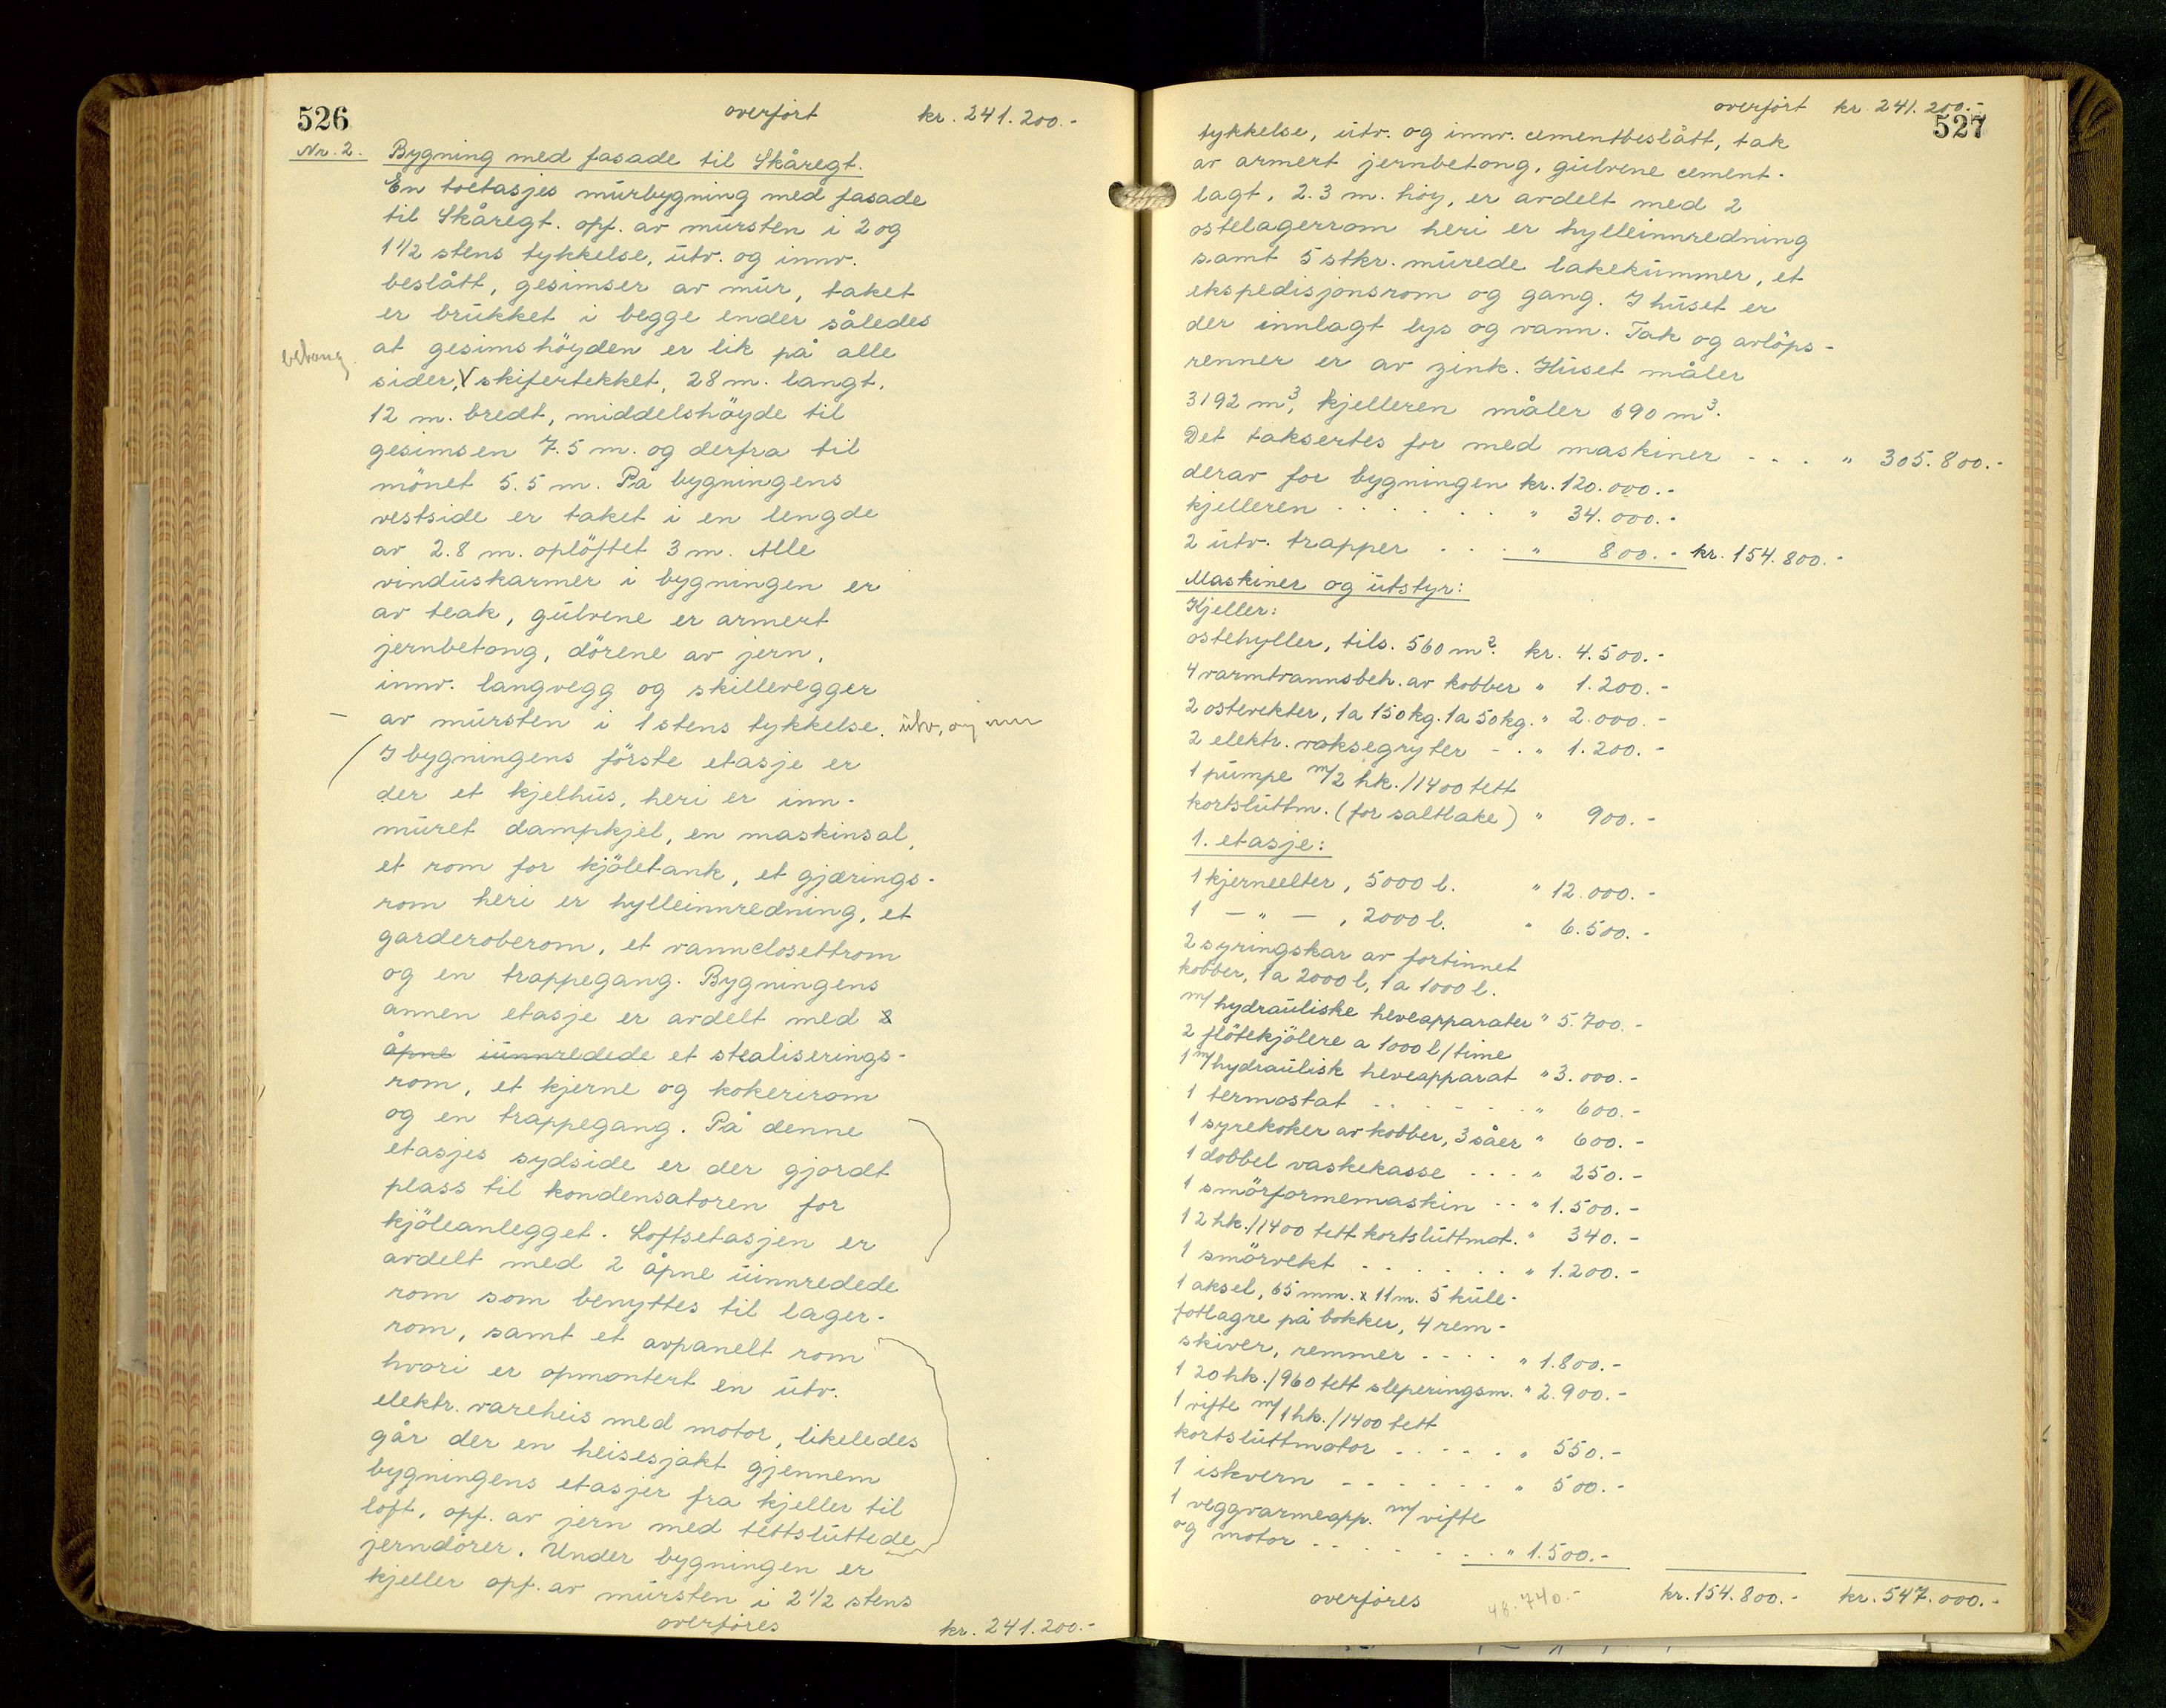 526
overført kr. 241.200.-
Nr. 2. Bygning med fasade til Skåregt.
En toetasjes mürbygning med fasade
til Skåregt. opf. av mürsten i 2 og
1 1/2 stens tykkelse, ütv. og innv.
beslått, gesimser av mür, taket
er brükket i begge ender således
at gesimshöyden er lik på alle
betong.
sider, V skifertekket, 28 m. langt,
12 m. bredt, middelshöyde til
gesimsen 7.5 m. og derfra til
mönet 5.5 m. På bygningens
vestside er taket i en lengde
av 2.8 m. oplöftet 3 m. Alle
vindüskarmer i bygningen er
av teak, gülvene er armert
jernbetong, dörene av jern,
innv. langvegg og skillevegger
- av mürsten i 1 stens tykkelse. ütv. og inn
I bygningens förste etasje er
der et kjelhüs, heri er inn-
müret dampkjel, en maskinsal,
et rom for kjöletank, et gjærings-
rom heri er hylleinnredning, et
garderoberom, et vannclosettrom
og en trappegang. Bygningens
annen etasje er avdelt med 2
åpne üinnredede et stealiserings-
rom, et kjerne og kokerirom
og en trappegang. På denne
etasjes sydside er der gjordt
plass til kondensatoren for
kjöleanlegget. Loftsetasjen er
avdelt med 2 åpne üinnredede
rom som benyttes til lager-
rom, samt et avpanelt rom
hvori er opmontert en ütv.
elektr. vareheis med motor, likeledes
går der en heisesjakt gjennem
bygningens etasjer fra kjeller til
loft, opf. av jern med tettslüttede
jerndörer. Under bygningen er
kjeller opf. av mürsten i 2 1/2 stens
overføres kr. 241.200.-
overført kr. 241.200.-
527
tykkelse, ütv. og innv. cementbeslått, tak
av armert jernbetong, gülvene cement-
lagt, 2.3 m. höy, er avdelt med 2
ostelagerrom heri er hylleinnredning
samt 5 stkr. mürede lakekümmer, et
ekspedisjonsrom og gang. I hüset er
der innlagt lys og vann. Tak og avlöps-
renner er av zink. Hüset måler
3192 m³, kjelleren måler 690 m³.
Det taksertes for med maskiner - - . " 305.800.-
derav for bygningen kr. 120.000.-
kjelleren . . . . . . " 34.000.-
2 ütv. trapper . . . " 800.- kr. 154.800.-
Maskiner og ütstyr:
Kjeller:
ostehyller, tils. 560 m². kr. 4.500.-
4 varmtvannsbeh. av kobber " 1.200.-
2 ostevekter, 1 a 150 kg. 1 a 50 kg. " 2.000.-
2 elektr. voksegryter - . " 1.200.-
1 pümpe m/2 hk./1400 tett
kortslüttm. (for saltlake) " 900.-
1. etasje:
1 kjerneelter, 5000 l. " 12.000.-
1 - " - , 2000 l. " 6.500.-
2 syringskar av fortinnet
kobber, 1 a 2000 l, 1 a 1000 l.
m/ hydraüliske heveapparater " 5.700.-
2 flötekjölere a 1000 l/time
1 m/hydraülisk heveapparat " 3.000.-
1 termostat . . . . . . " 600.-
1 syrekoker av kobber, 3 såer " 600.-
1 dobbel vaskekasse . . . " 250.-
1 smörformemaskin . . " 1.500.-
1 2 hk./1400 tett kortslüttmot. " 340.-
1 smörvekt . . . . . . " 1.200.-
1 aksel, 65 mm. x 11 m. 5 küle-
fotlagre på bokker, 4 rem-
skiver, remmer . . . . " 1.800.-
1 20 hk./960 tett sleperingsm. " 2.900.-
1 vifte m/1 hk./1400 tett
kortslüttmotor . . . . . " 550.-
1 iskvern - - - - - - - " 500.-
1 veggvarmeapp. m/ vifte
og motor . . . . . . . " 1.500.-
overføres 48.740.- kr. 154.800.- kr. 547.000.-